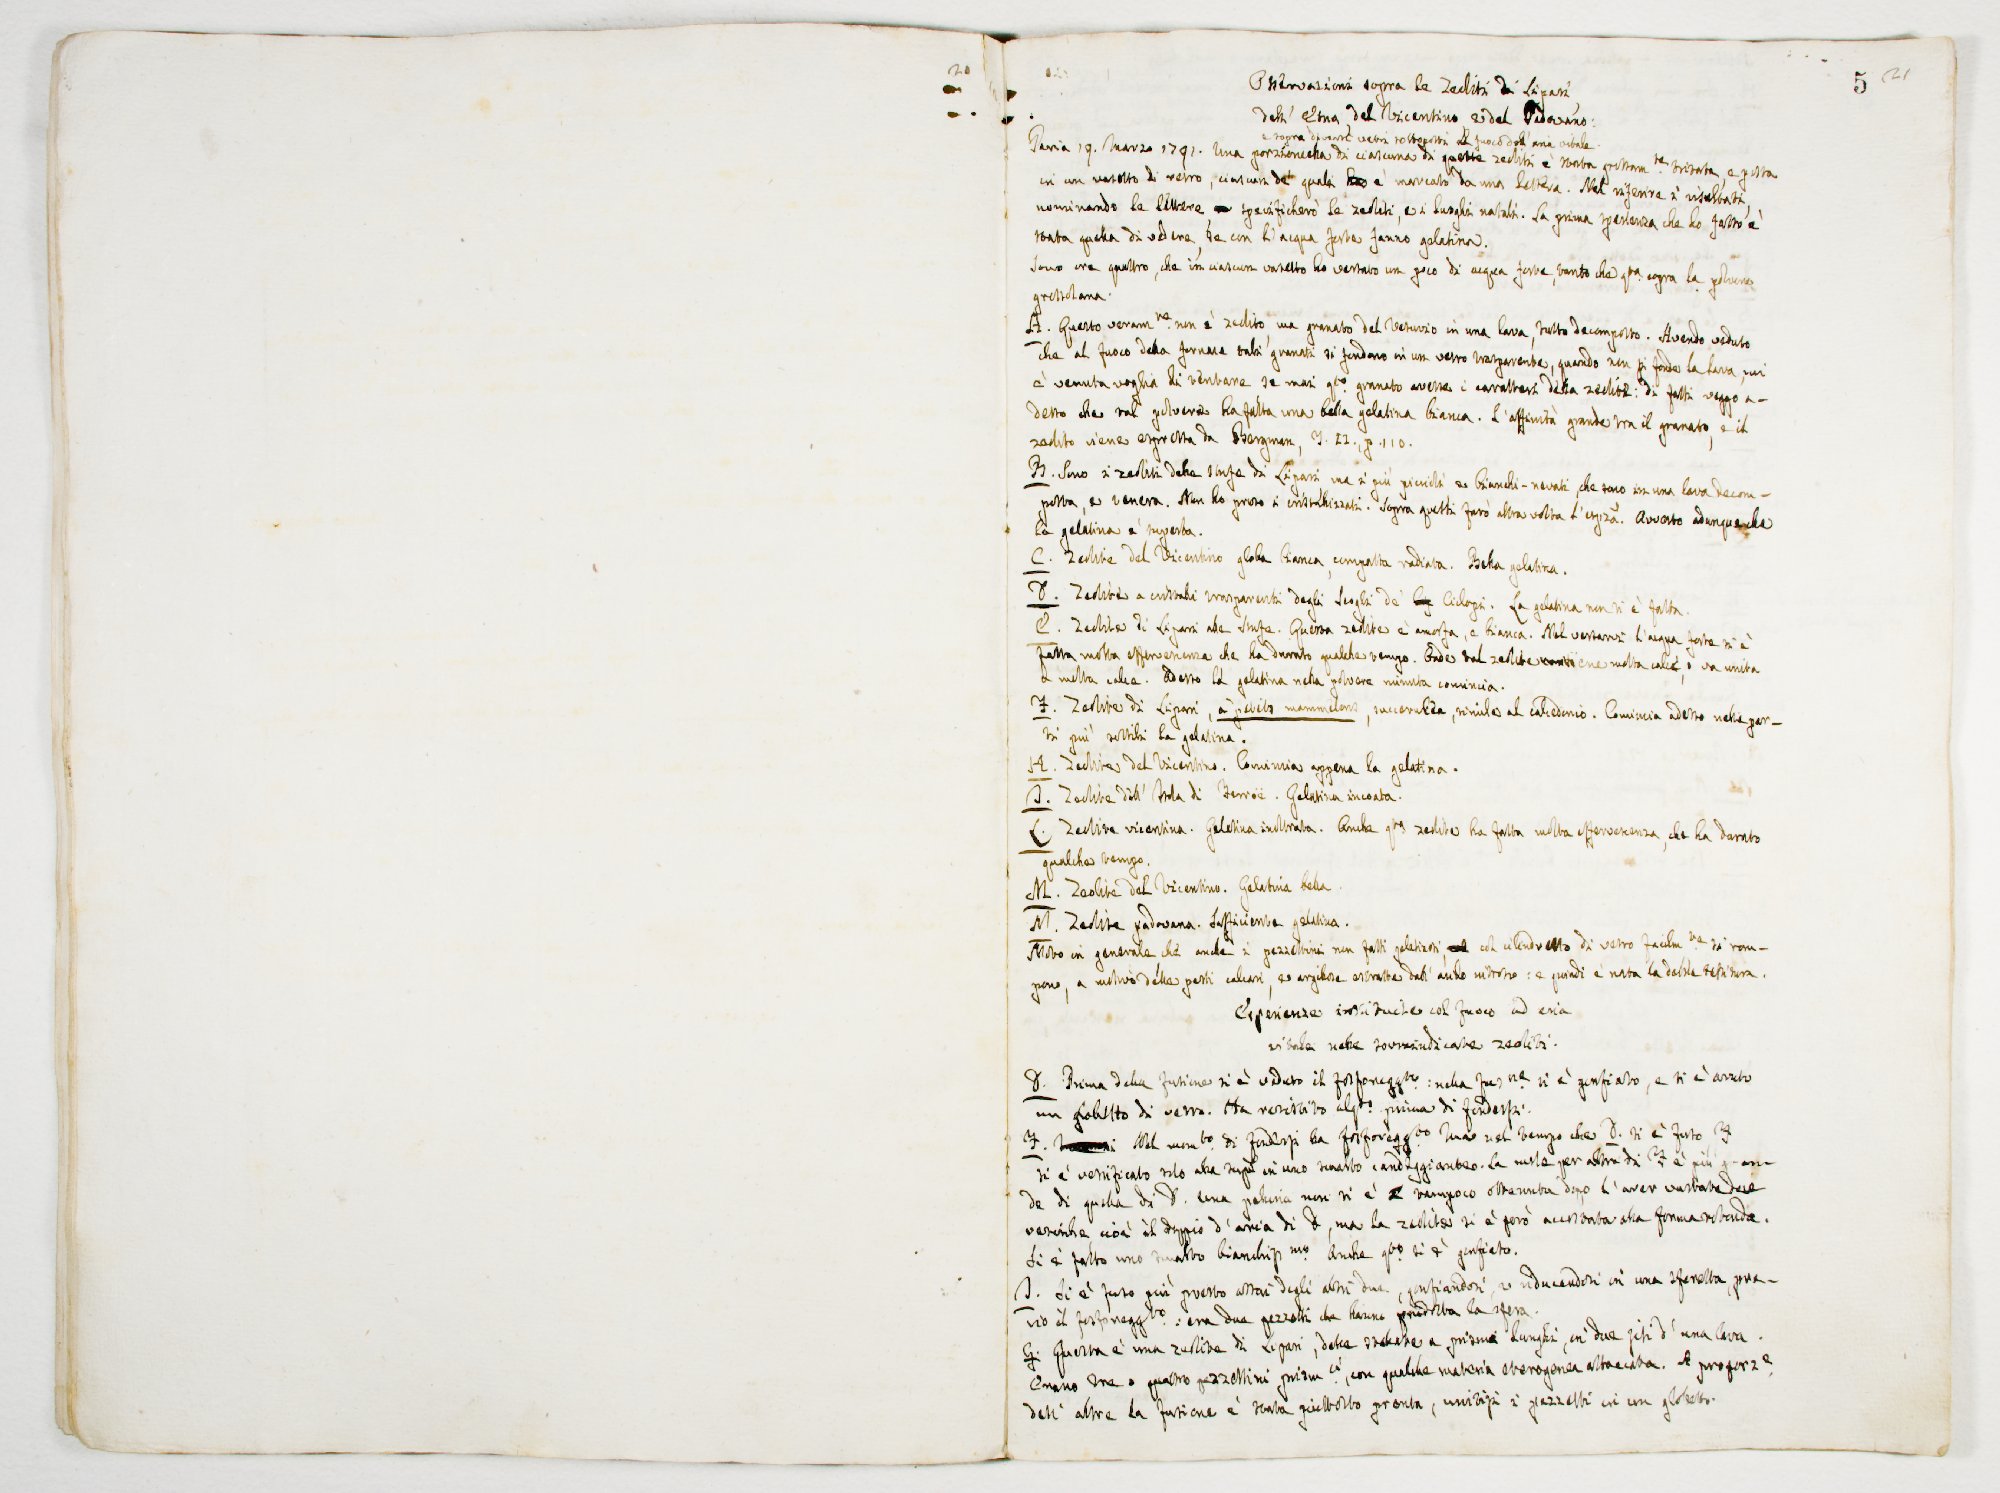 20
5 21
Osservazioni sopra le Zeoliti di Lipari
dell' Etna, del Vicentino e del Padovano:
e sopra diversi vetri sottoposti al fuoco dell' aria vitale.
Pavia 19. Marzo 1791. Una porzioncella di ciascuna di queste zeoliti è stata grossam.te tritata, e posta
in un vasetto di vetro, ciascun de' quali è marcato da una lettera. Nel riferire i risultati,
nominando le lettere specificherò le zeoliti, e i luoghi natali. La prima sperienza che ho fatto è
stata quella di vedere, se con l'acqua forte fanno gelatina.
Sono ore quattro, che in ciascun vasetto ho versato un poco di acqua forte, tanto che q.ta copra la polvere
grossolana.
A. Questo veram.te non è zeolito ma granato del Vesuvio in una lava, tutto decomposto. Avendo veduto
che al fuoco della fornace tali granati si fondono in un vetro trasparente, quando non si fonde la lava, mi
è venuta voglia di tentare se mai q.to granato avesse i caratteri della zeolite: di fatti veggo a-
desso che tal polvere ha fatta una bella gelatina bianca. L'affinità grande tra il granato, e il
zeolito viene espressa da Bergman, T. II., p. 110.
B. Sono i zeoliti delle stufe di Lipari ma i più piccioli e bianchi-nevati, che sono in una lava decom-
posta, e tenera. Non ho preso i cristallizzati. Sopra questi farò altra volta l'esp.za. Avverto adunque che
la gelatina è superba.
C. Zeolite del Vicentino globa bianca, compatta radiata. Bella gelatina.
D. Zeolite a cristalli trasparenti degli Scogli de' Ciclopi. La gelatina non si è fatta.
E. Zeolite di Lipari alle Stufe. Questa zeolite è amorfa, e bianca. Nel versarvi l'acqua forte si è
fatta molta effervescenza che ha durato qualche tempo. Onde tal zeolite contiene molta calce, o va unita
a molta calce. Adesso la gelatina nella polvere minuta comincia.
F. Zeolite di Lipari, à petits mammelons, succerulea, simile al calcedonio. Comincia adesso nelle par-
ti più sottili la gelatina.
H. Zeolite del Vicentino. Comincia appena la gelatina.
I. Zeolite dell' Isola di Ferroë. Gelatina incoata.
L. Zeolite vicentina. Gelatina inoltrata. Anche q.ta zeolite ha fatta molta effervescenza, che ha durato
qualche tempo.
M. Zeolite del Vicentino. Gelatina bella.
N. Zeolite padovana. Sufficiente gelatina.
Noto in generale che anche i pezzettini non fatti gelatinosi, col cilindretto di vetro facilm.te si rom-
pono, a motivo delle parti calcari, e argillose estratte dall' acido nitroso: e quindi è nata la debile tessitura.
Esperienze instituite col fuoco ad aria
vitale nelle sovraindicate zeoliti.
D. Prima della fusione si è veduto il fosforegg.to: nella fus.ne si è gonfiato, e si è avuto
un globetto di vetro. Ha resistito alq.to prima di fondersi.
F. Nel mom.to di fondersi ha fosforegg.to Ma nel tempo che D. si è fuso F
si è vetrificato solo alla sup. in uno smalto candeggiante. La mole per altro di F è più gran-
de di quella di D. Una pallina non si è tampoco ottenuta dopo l'aver
vesciche, cioè il doppio d'aria di D, ma la zeolite si è però accostata alla forma rotonda.
Si è fatto uno smalto bianchis.mo Anche q.to si è gonfiato.
I. Si è fuso più presto assai degli altri due, gonfiandosi, e riducendosi in una sferetta, pre-
vio il fosforegg.to: era due pezzetti che hanno prodotta la sfera.
G. Questa è una zeolite di Lipari, delle a prismi lunghi, in due siti d'una lava.
Erano tre o quattro pezzettini prism.ci, con qualche materia eterogenea attaccata. A proporz.e
dell' altre la fusione è stata piuttosto pronta, unitisi i pezzetti in un globetto.